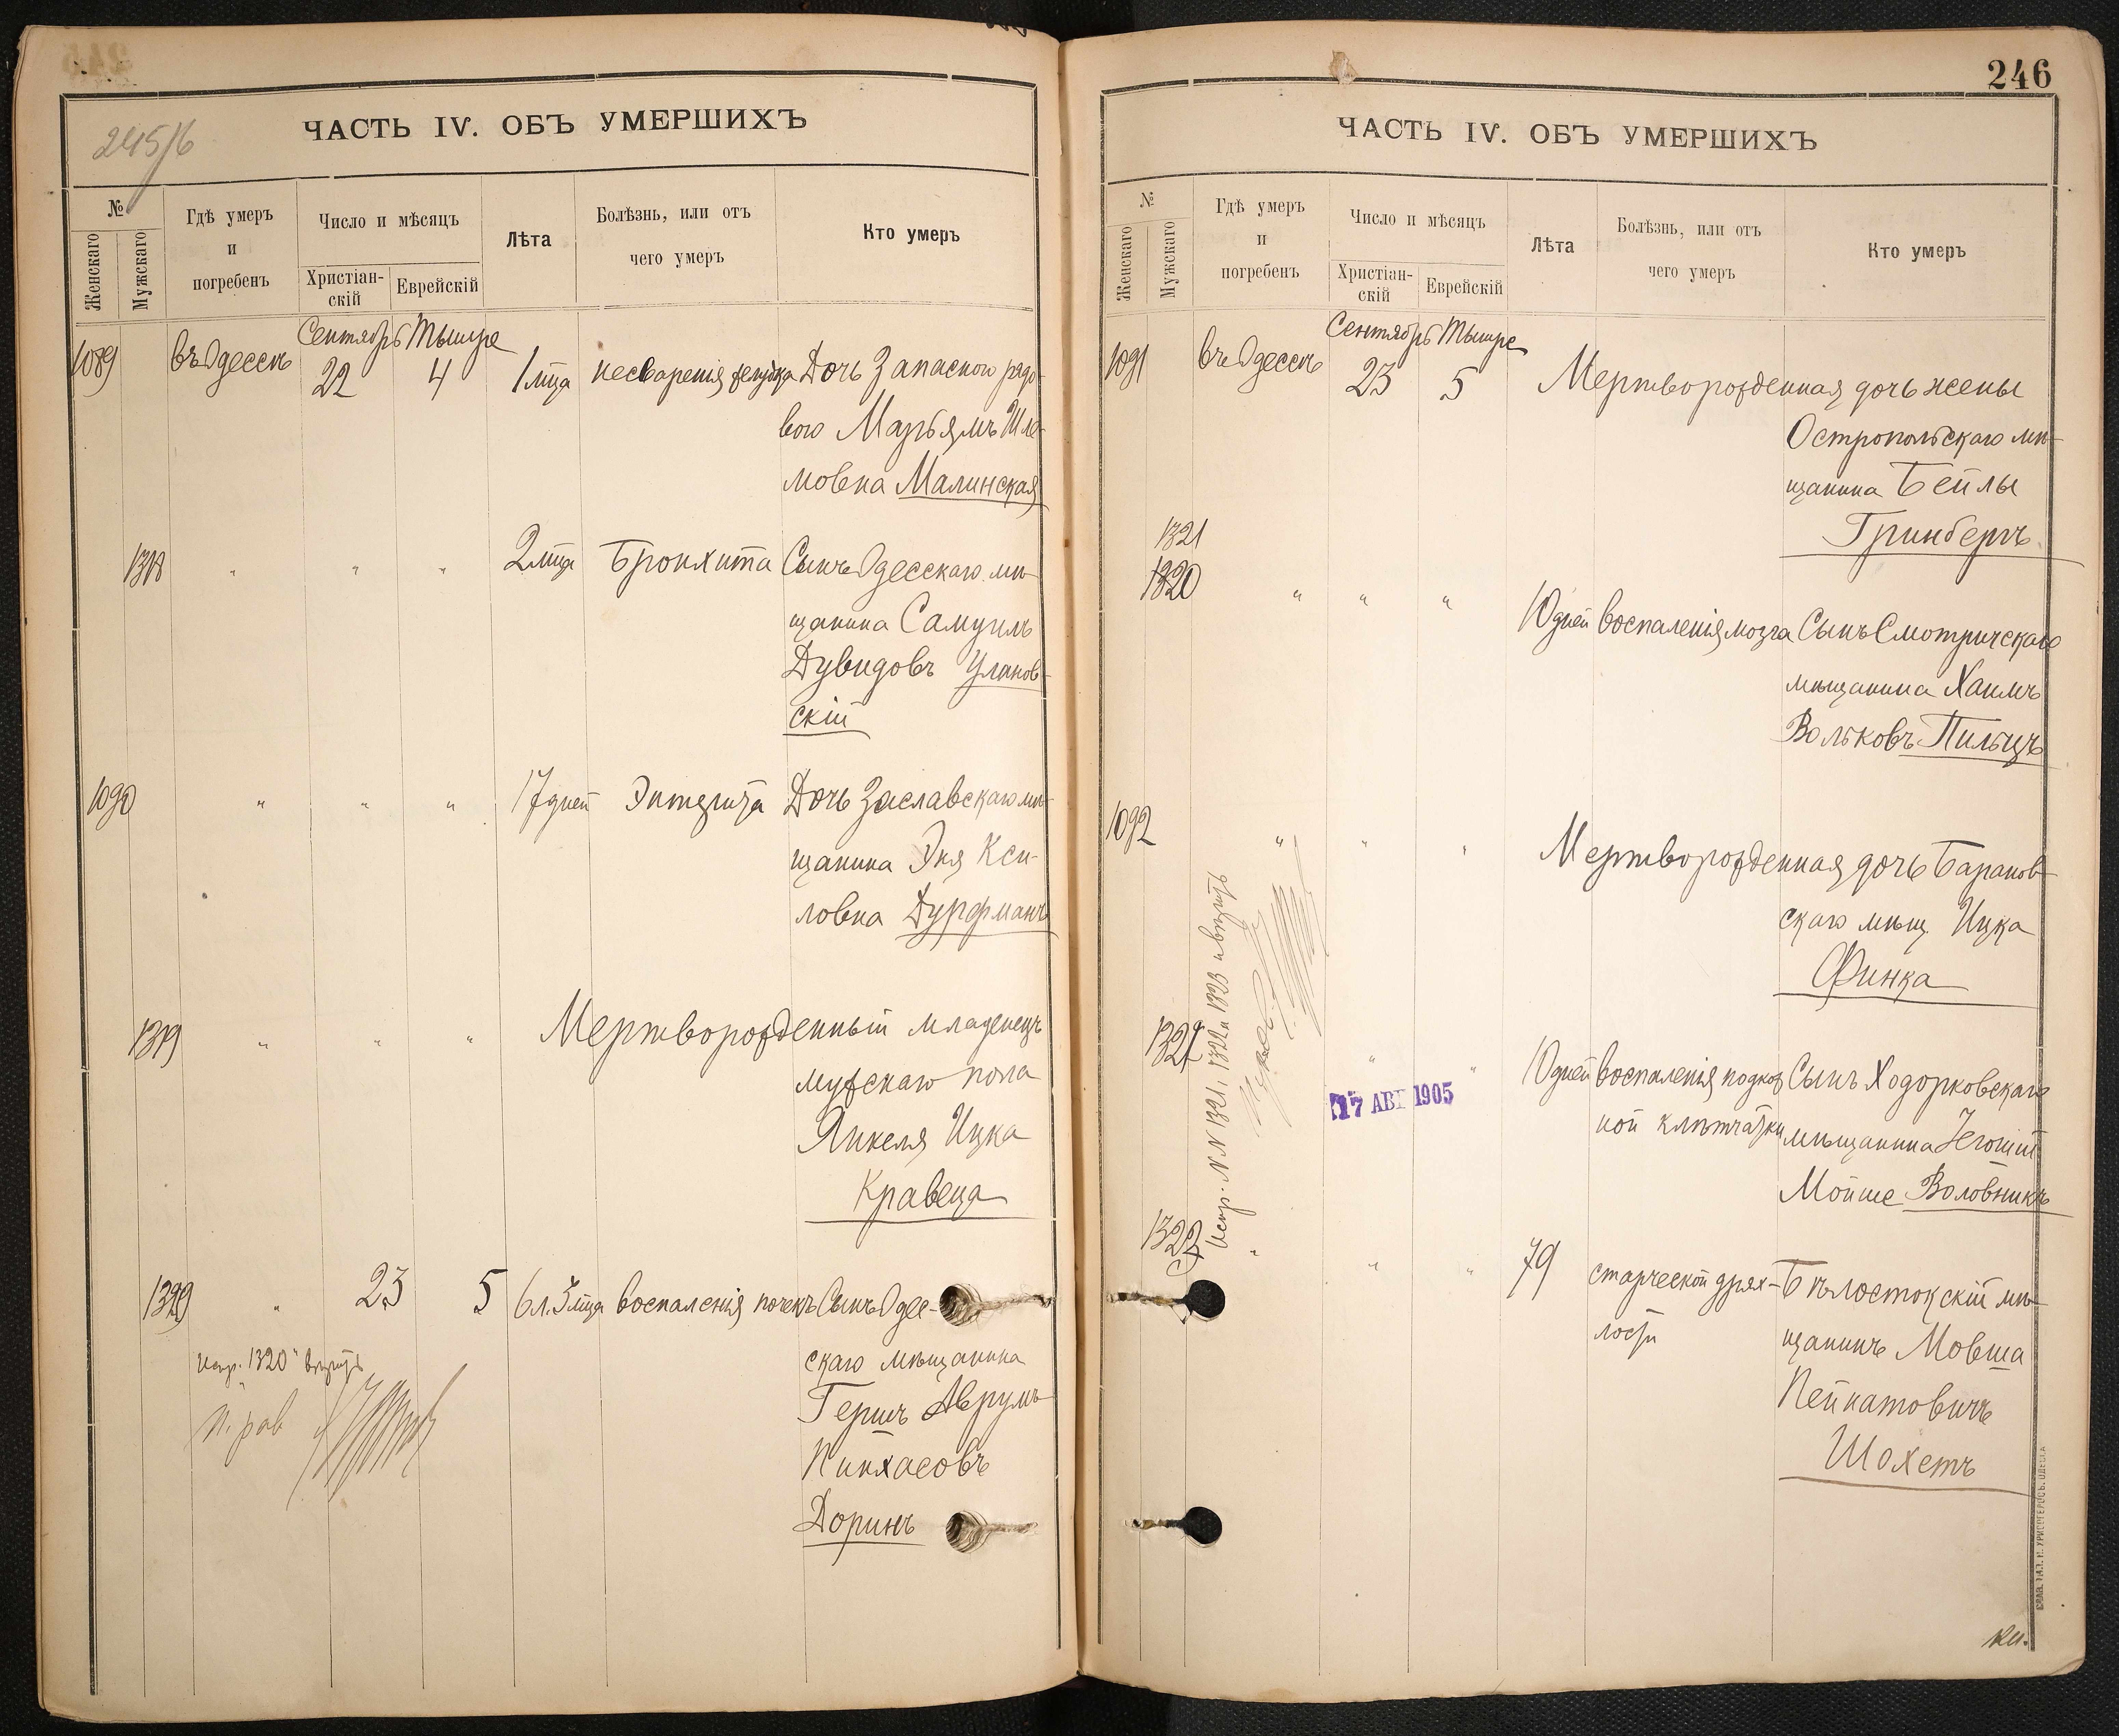 245/6
ЧАСТЬ IV. ОБЪ УМЕРШИХЪ
№
Женскаго
Мужскаго
Гдѣ умеръ
и
погребенъ
Число и мѣсяцъ
Христіан-
скій
Еврейскій
Лѣта
Болѣзнь, или отъ
чего умеръ
Кто умеръ
Сентябрь Тышре
1089 въ Одессѣ 22 4 1 мѣца несваренія желудка Дочь Запаснои рядо-
вого Марьямъ Шле-
мовна Малинская
1318 " " " 2 мѣца Бронхита Сынъ Одесскаго мѣ-
щанина Самуилъ
Дувидовъ Улинов-
скій
1090 " " " 17 дней Энтерита Дочь Заславскаго мѣ-
щанина Эня Кси-
ловна Дурфманъ
1319 " " " Мертворожденный младенецъ
мужскаго пола
Янкеля Ицка
Кравеца
1320 " 23 5 6 л. 3 мѣца воспаленія почекъ Сынъ Одес-
скаго мѣщанина
Гершъ Аврумъ
Пинхасовъ
Доринъ
испр. 1320 " вѣрить
п. рав
246
ЧАСТЬ IV. ОБЪ УМЕРШИХЪ
№
Женскаго
Мужскаго
Гдѣ умеръ
и
погребенъ
Число и мѣсяцъ
Христіан-
скій
Еврейскій
Лѣта
Болѣзнь, или отъ
чего умеръ
Кто умеръ
Сентябрь Тышре
1091 въ Одессѣ 23 5 Мертворожденная дочь жены
Остропольскаго мѣ-
щанина Бейлы
Гринбергъ
1321
1320 " " " 10 дней воспаленія мозга Сынъ Смотричскаго
мѣщанина Хаимъ
Вольковъ Пильцъ
1092 " " " Мертворожденная дочь Баранов-
скаго мѣщ. Ицка
Финка
1322 " " 10 дней воспаленія подкож- Сынъ Ходорковскаго
ной клѣтчатки мѣщанина Іегошій
Мойше Воловникъ
17 АВГ 1905
Испр. №№ 1321, 1322 и 1323 вѣрить
1323 " " " 79 старческой дрях- Бѣлостокскій мѣ-
лости щанинъ Мовша
Пейкатовичъ
Шохетъ